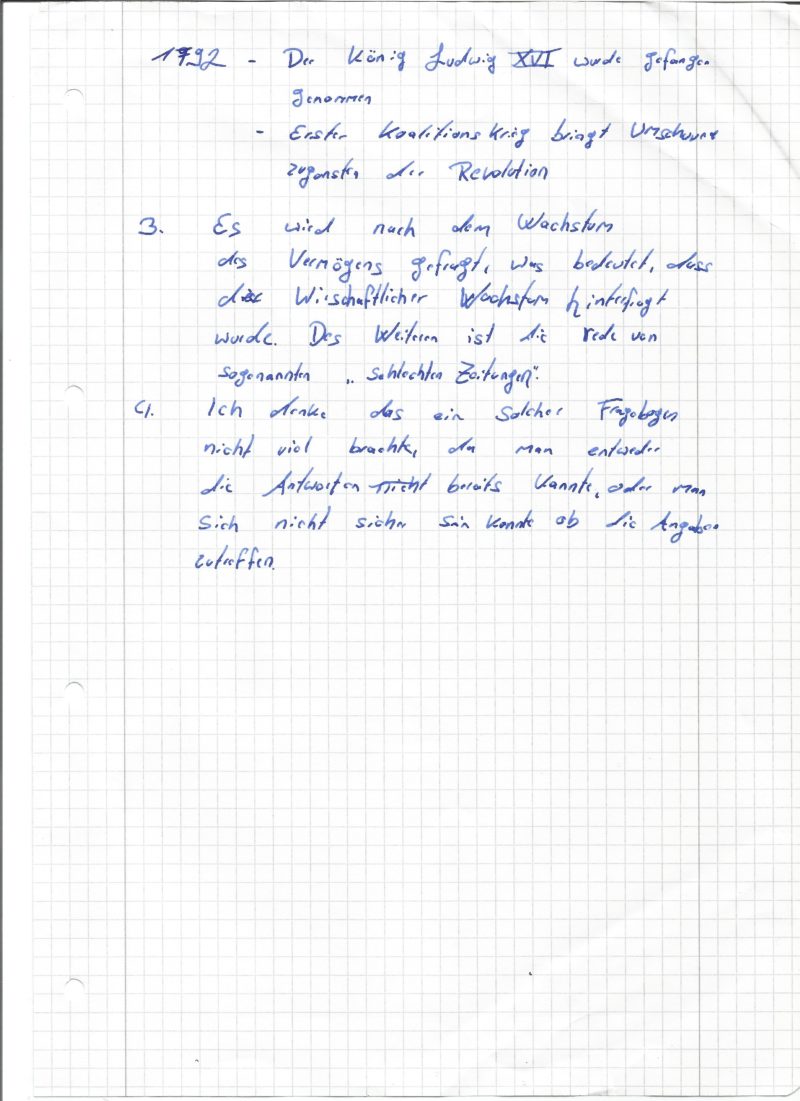 1792 - Der König Ludwig XVI wurde gefangen
genommen
- Erster Koalitionskrieg bringt Umschwung
zugunsten der Revolution
3. Es wird nach dem Wachstum
des Vermögens gefragt, was bedeutet, dass
Wirschaftlicher Wachstum hinterfragt
wurde. Des Weiteren ist die rede von
sogenannten „schlechten Zeitungen".
4. Ich denke das ein solcher Fragebogen
nicht viel brachte, da man entweder
die Antworten nicht bereits kannte, oder man
sich nicht sicher sein konnte ob die Angaben
zutreffen.